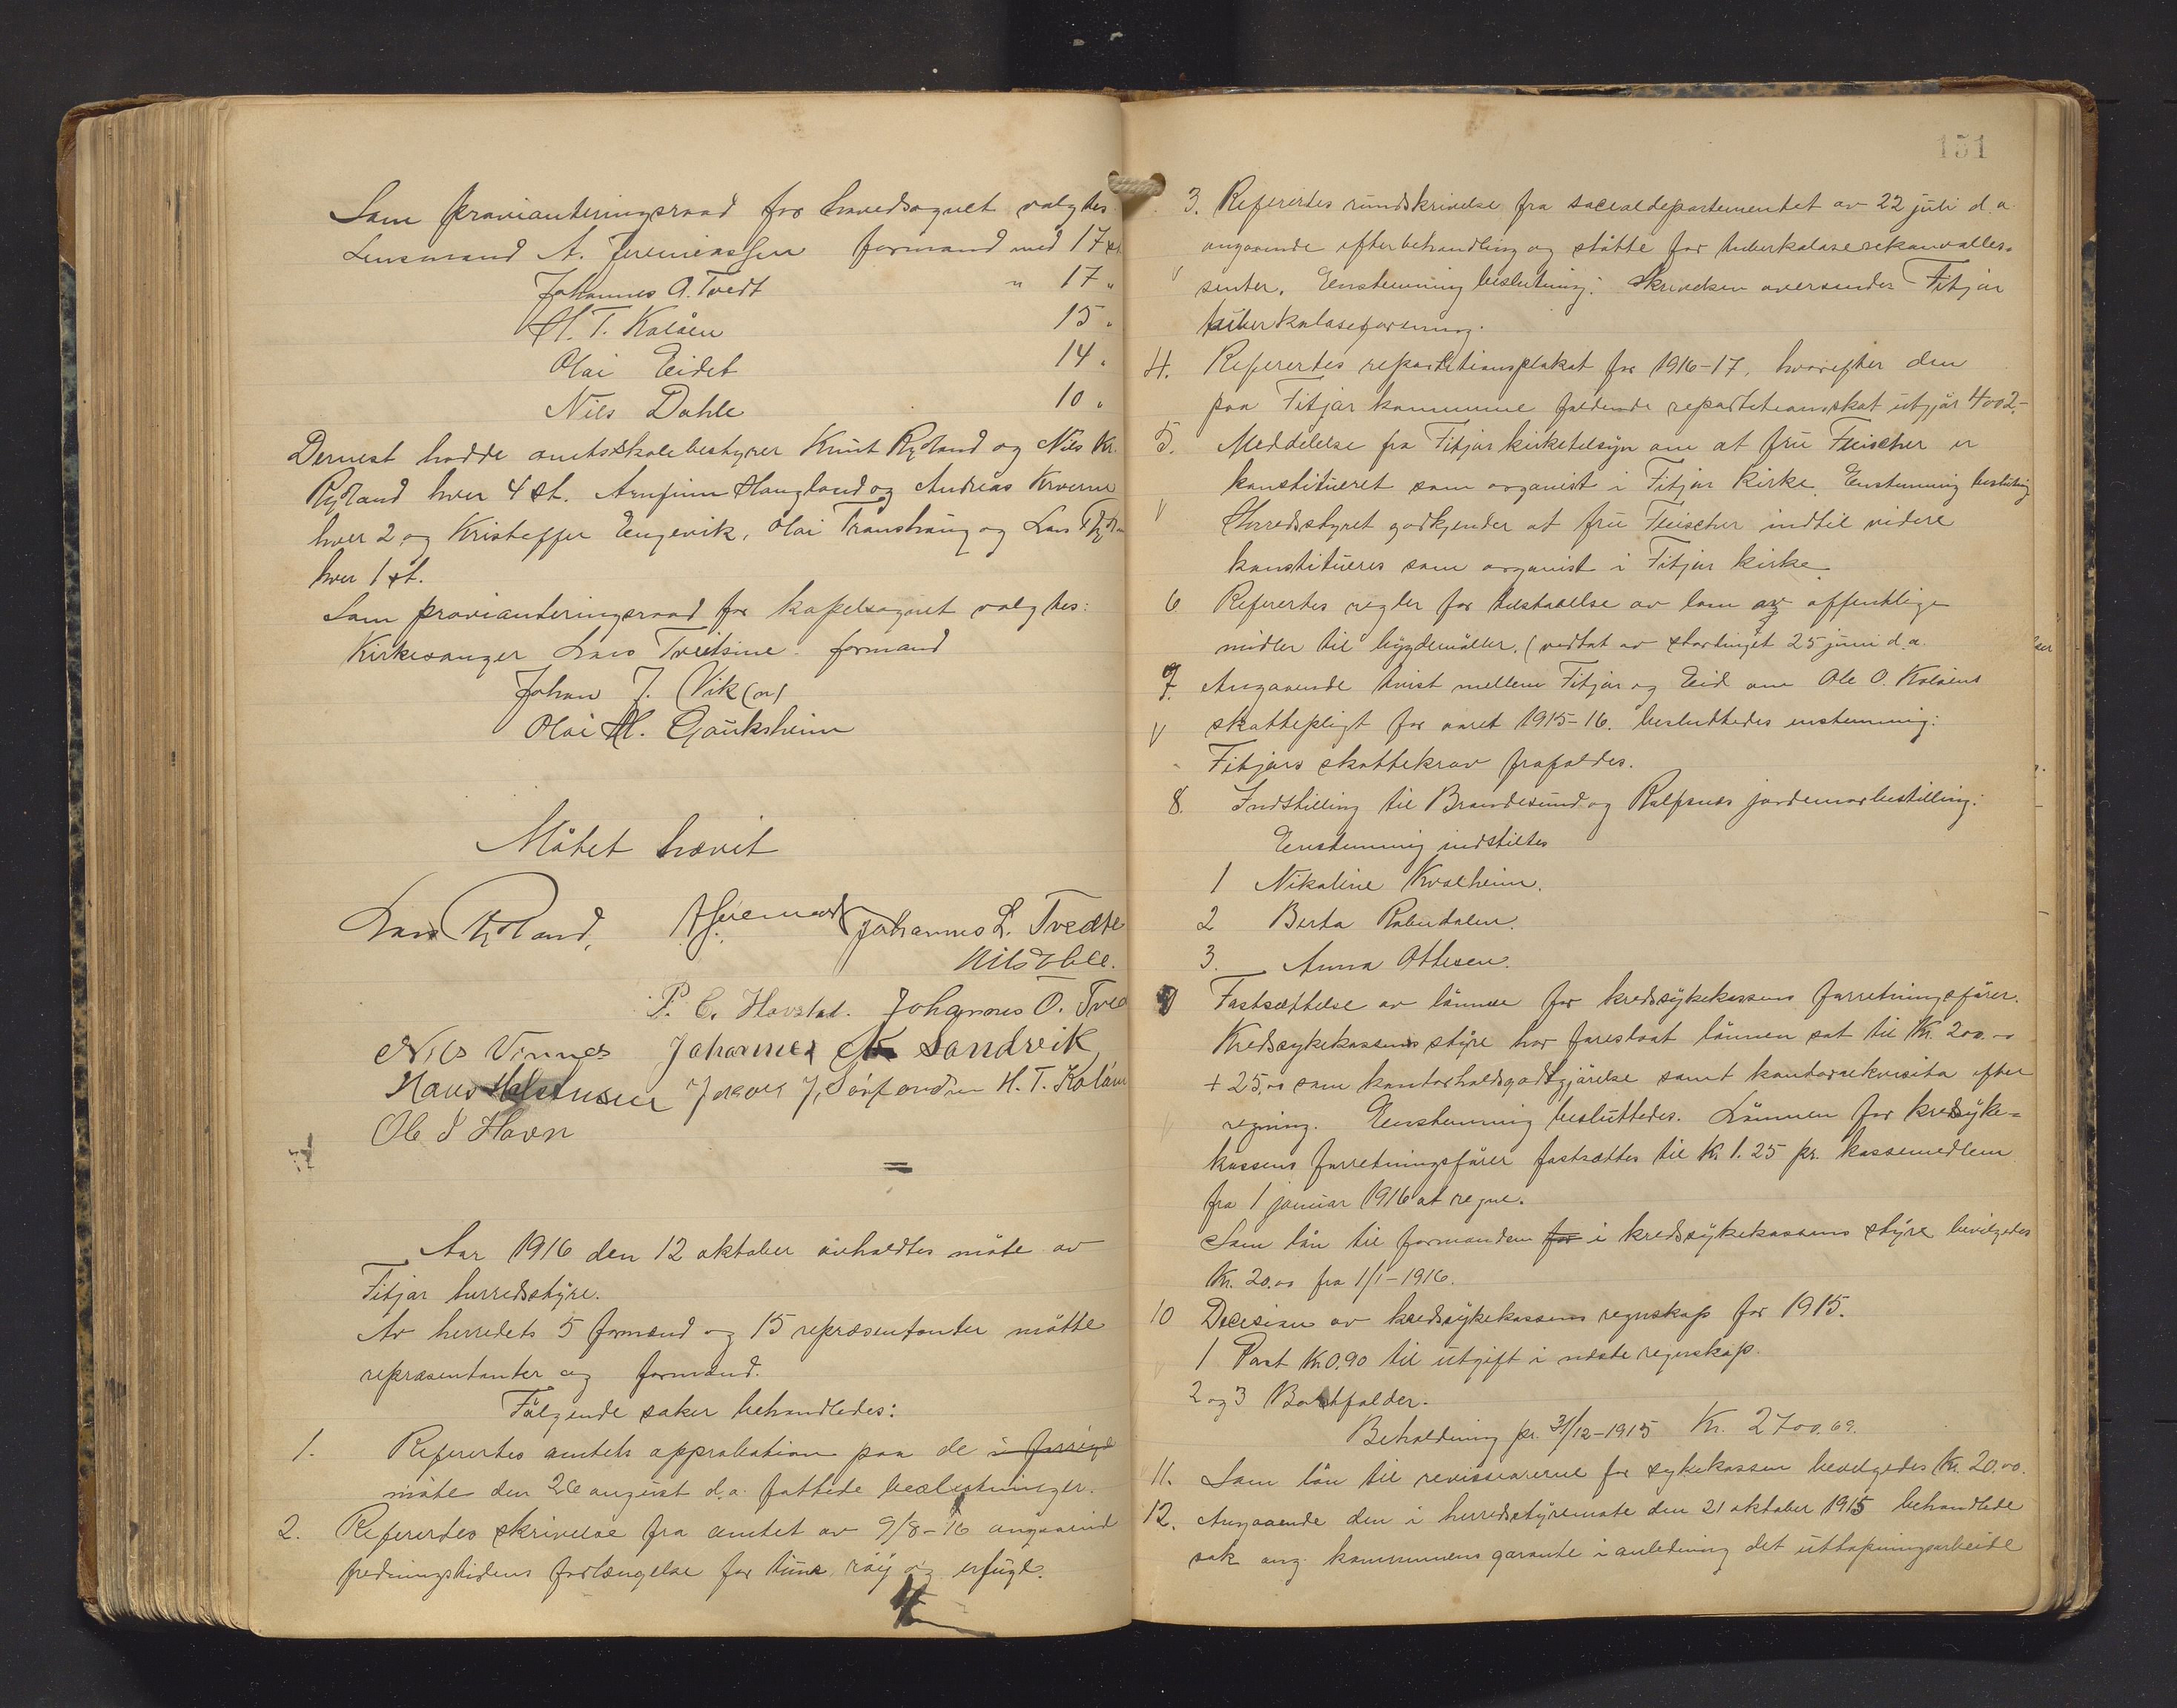 Som provianteringsraad for hovedsognet valgtes
Lensmand A. Jeremiassen formand med 17 st.
Johannes O. Tvedt " 17 "
H. T. Kolåen 15 "
Olai Eidet 14 "
Nils Dahle 10 "
Dernest hadde amtsskolebestyrer Knut Rydland og Nils Kr.
Rydland hver 4 st. Arnfinn Haugland og Andreas Kverne
hver 2 og Kristoffer Engevik, Olai Transtaug og Lars
hver 1 st.
Som provianteringsraad for kapelsognet valgtes:
Kirkesanger Lars Tveitsme formand
Johan J. Vik (or)
Olai H. Gauksheim
Møtet hævet
Lars Rydland, A. Jeremias Johannes L. Tvedte
Nils Dahle.
P. C. Havstad. Johannes O. Tve
Nils Vinnes Johannes Sandvik
Hans Jakob J. H. T. Kolåen
Ole J Havn
Aar 1916 den 12 oktober avholdtes møte av
Fitjar herredsstyre.
Av herredets 5 formænd og 15 repræsentanter møtte
repræsentanter og formænd.
Følgende saker behandledes:
1. Refererdes amtets approbation paa de i forrige
møte den 26 august d.a. fattede beslutninger.
2. Refererdes skrivelse fra amtet av 9/8-16 angaaend
fredningstidens forlængelse for tiur, røy og orfugl.
151
3. Refererdes rundskrivelse fra socialdepartementet av 22 juli d.a
angaaende efterbehandling og støtte for tuberkuloserekonvalles-
senter. Enstemmig beslutning: Skrivelsen oversendes Fitjar
tuberkuloseforening.
4. Refererdes repartitionsplakat for 1916-17, hvorefter den
paa Fitjar kommune faldende repartitionsskat utgjør 4002,-
5. Meddelelse fra Fitjar kirketilsyn om at fru Fleischer er
konstitueret som organist i Fitjar Kirke. Enstemmig beslutning
Herredsstyret godkjender at fru Fleischer indtil videre
konstitueres som organist i Fitjar kirke.
6 Refererdes regler for tilstaaelse av laan av offentlige
midler til bygdemøller. (vedtat av stortinget 25 juni d.a.
7. Angaaende tvist mellem Fitjar og Eid om Ole O. Kolåens
skattepligt for aaret 1915-16. besluttedes enstemmig:
Fitjars skattekrav frafaldes.
8. Indstilling til Brandesund og Rolfsnes jordemorbestilling:
Enstemmig indstiltes
1 Nikoline Kvalheim.
2 Berta Rabndalen.
3. Anna Ottesen.
9 Fastsættelse av lønnen for kredssykekassens forretningsfører.
Kredssykekassens styre har foreslaat lønnen sat til Kr. 200.00
+ 25,00 som kontorholdsgodtgjørelse samt kontorrekvisita efter
regning. Enstemmig besluttedes. Lønnen for kredssyke-
kassens forretningsfører fastsættes til Kr 1.25 pr. kassemedlem
fra 1 januar 1916 at regne.
Som løn til formanden for i kredssykekassens styre bevilgedes
Kr. 20.00 fra 1/1-1916.
10 Decision av kredssykekassens regnskap for 1915.
1 Post Kr 0.90 til utgift i næste regnskap.
2 og 3 Bortfalder.
Beholdning pr. 31/12-1915 Kr. 2700.69.
11. Som løn til revissorerne for sykekassen bevilgedes Kr. 20.00.
12. Angaaende den i herredsstyremøte den 21 oktober 1915 behandlede
sak ang. kommunens garanti i anledning det uttapningsarbeide